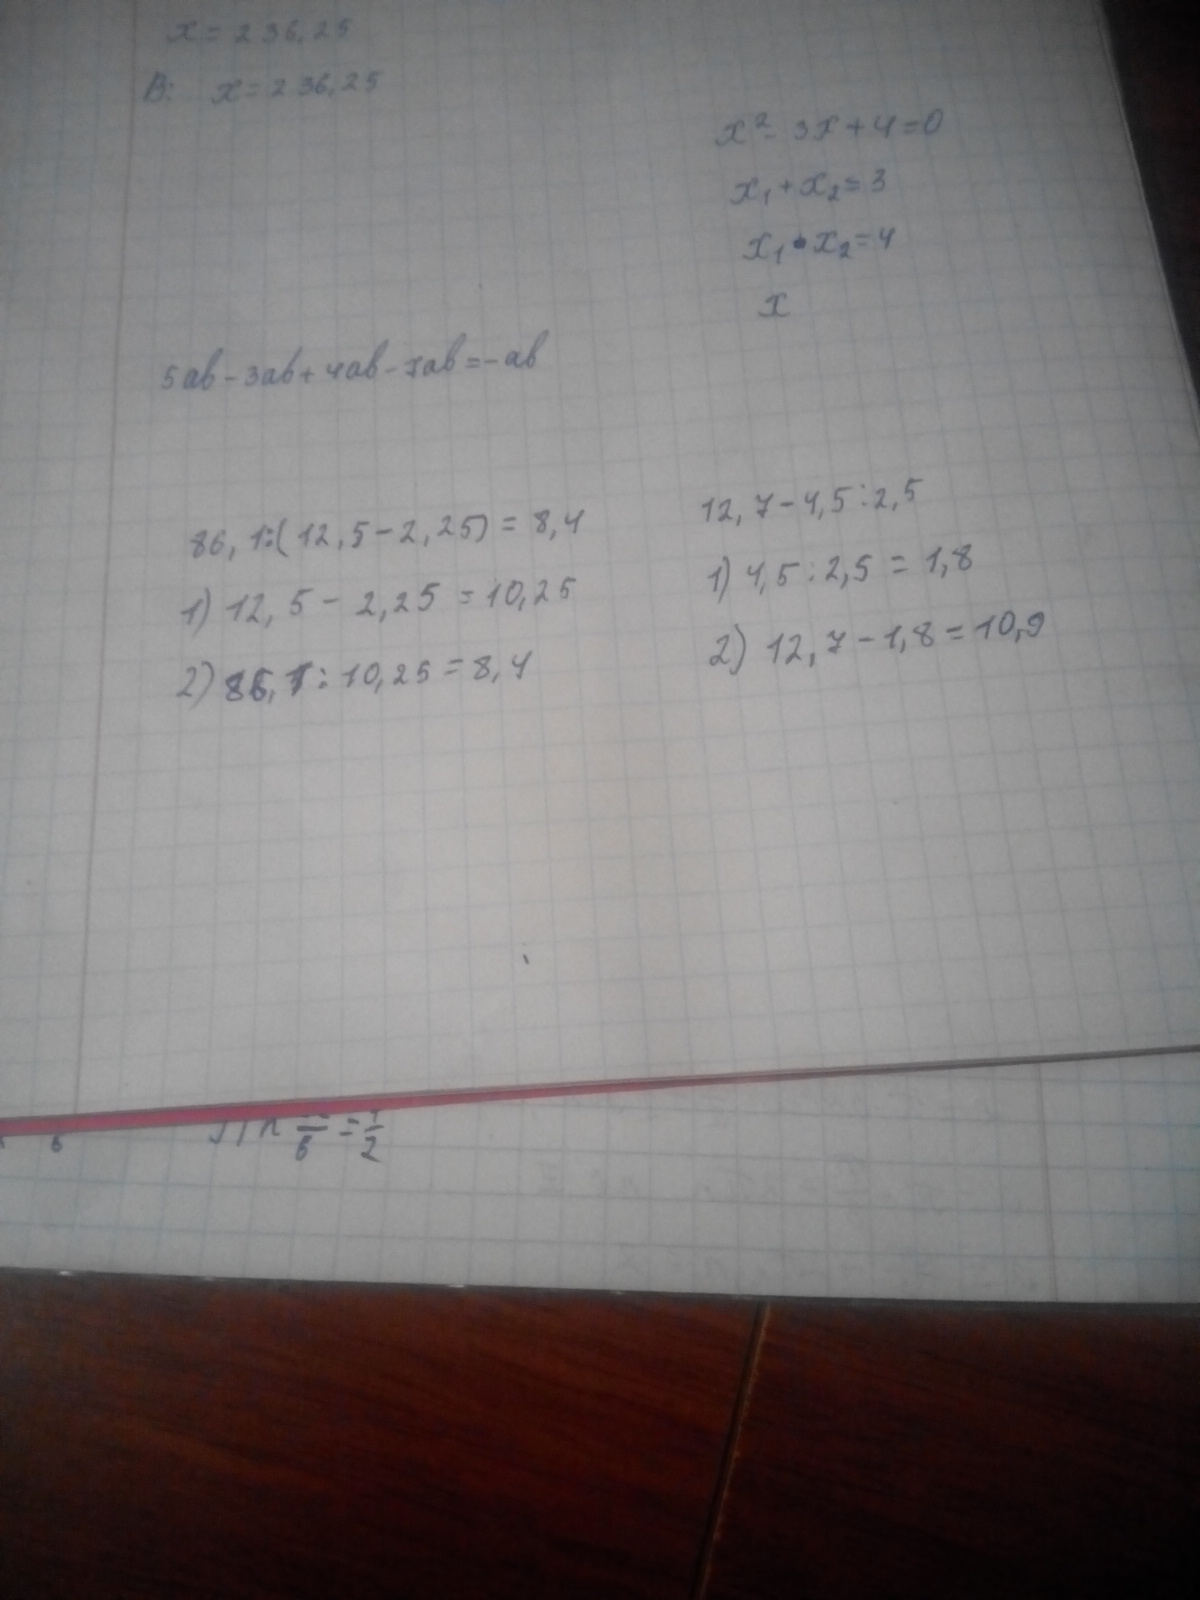 x = 236,25
В: x = 236,25
x² - 3x + 4 = 0
x₁ + x₂ = 3
x₁ • x₂ = 4
x
5ab - 3ab + 4ab - 7ab = - ab
86,1 : (12,5 - 2,25) = 8,4
1) 12,5 - 2,25 = 10,25
2) 86,1 : 10,25 = 8,4
12,7 - 4,5 : 2,5
1) 4,5 : 2,5 = 1,8
2) 12,7 - 1,8 = 10,9